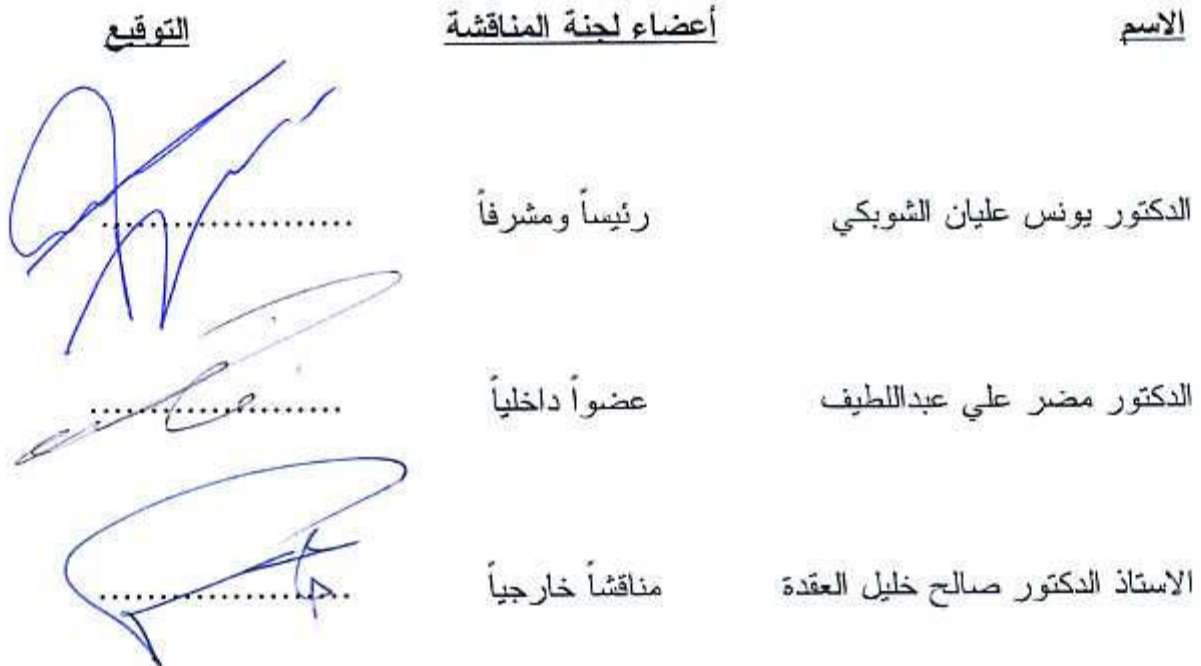 الاسم أعضاء لجنة المناقشة التوقيع
الدكتور يونس عليان الشوبكي رئيساً ومشرفاً ....................
الدكتور مضر علي عبداللطيف عضواً داخلياً ....................
الاستاذ الدكتور صالح خليل العقدة مناقشاً خارجياً ....................